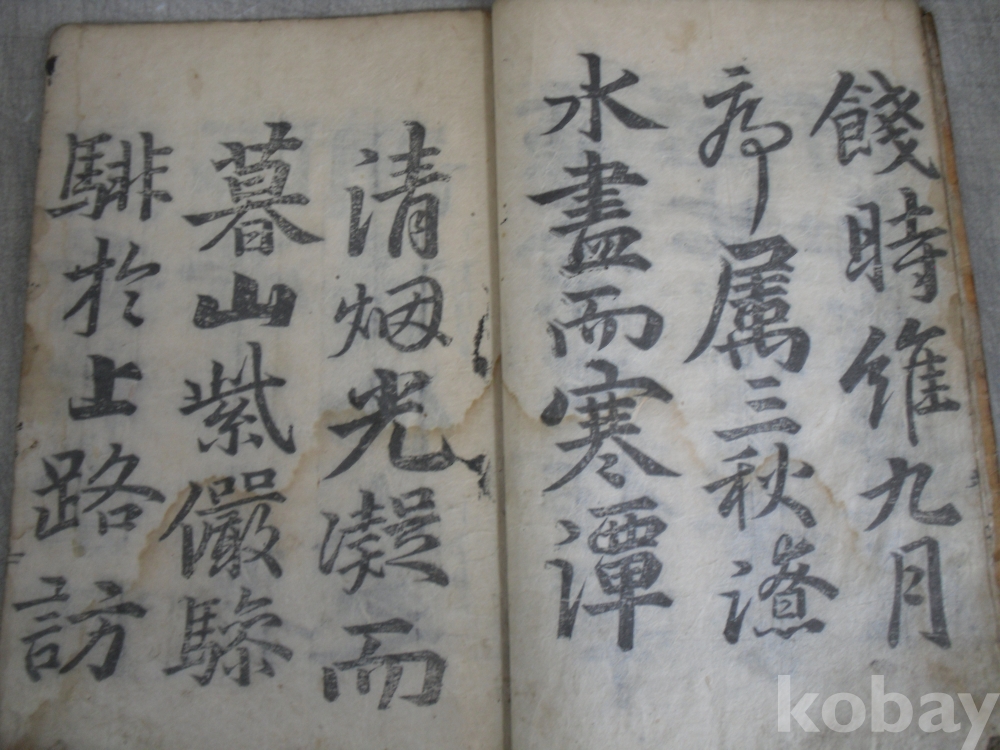 餞時維九月
序属三秋潦
水盡而寒潭
清烟光凝而
暮山紫儼驂
騑於上路訪
kobay